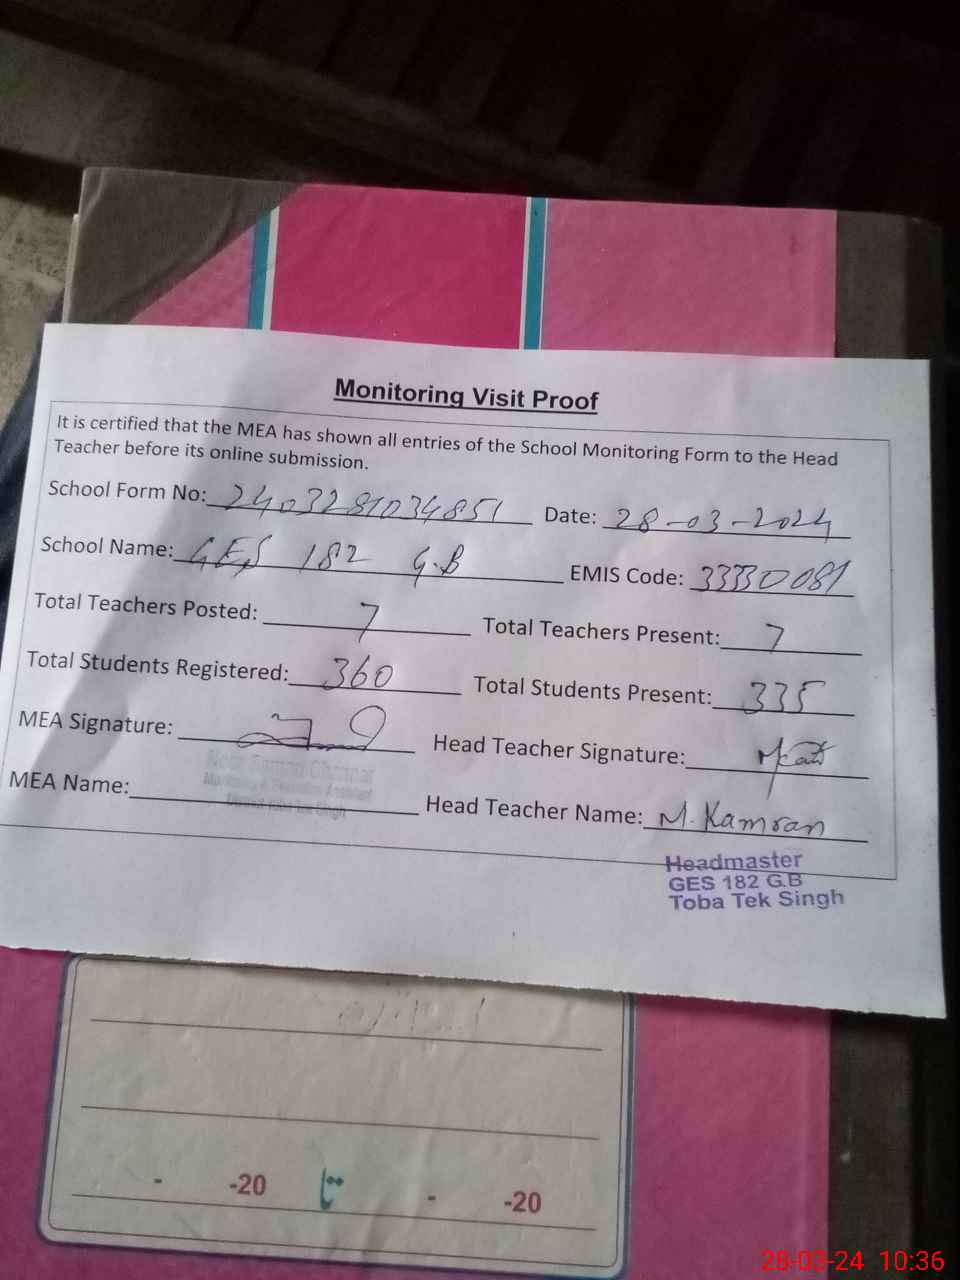 Monitoring Visit Proof
It is certified that the MEA has shown all entries of the School Monitoring Form to the Head
Teacher before its online submission.
School Form No: 2403281034851 Date: 28-03-2024
School Name: GES 182 G.B EMIS Code: 33330081
Total Teachers Posted: 7 Total Teachers Present: 7
Total Students Registered: 360 Total Students Present: 335
MEA Signature: Head Teacher Signature:
MEA Name: Head Teacher Name: M. Kamran
Headmaster
GES 182 G.B
Toba Tek Singh
- -20 تا - -20
28-03-24 10:36